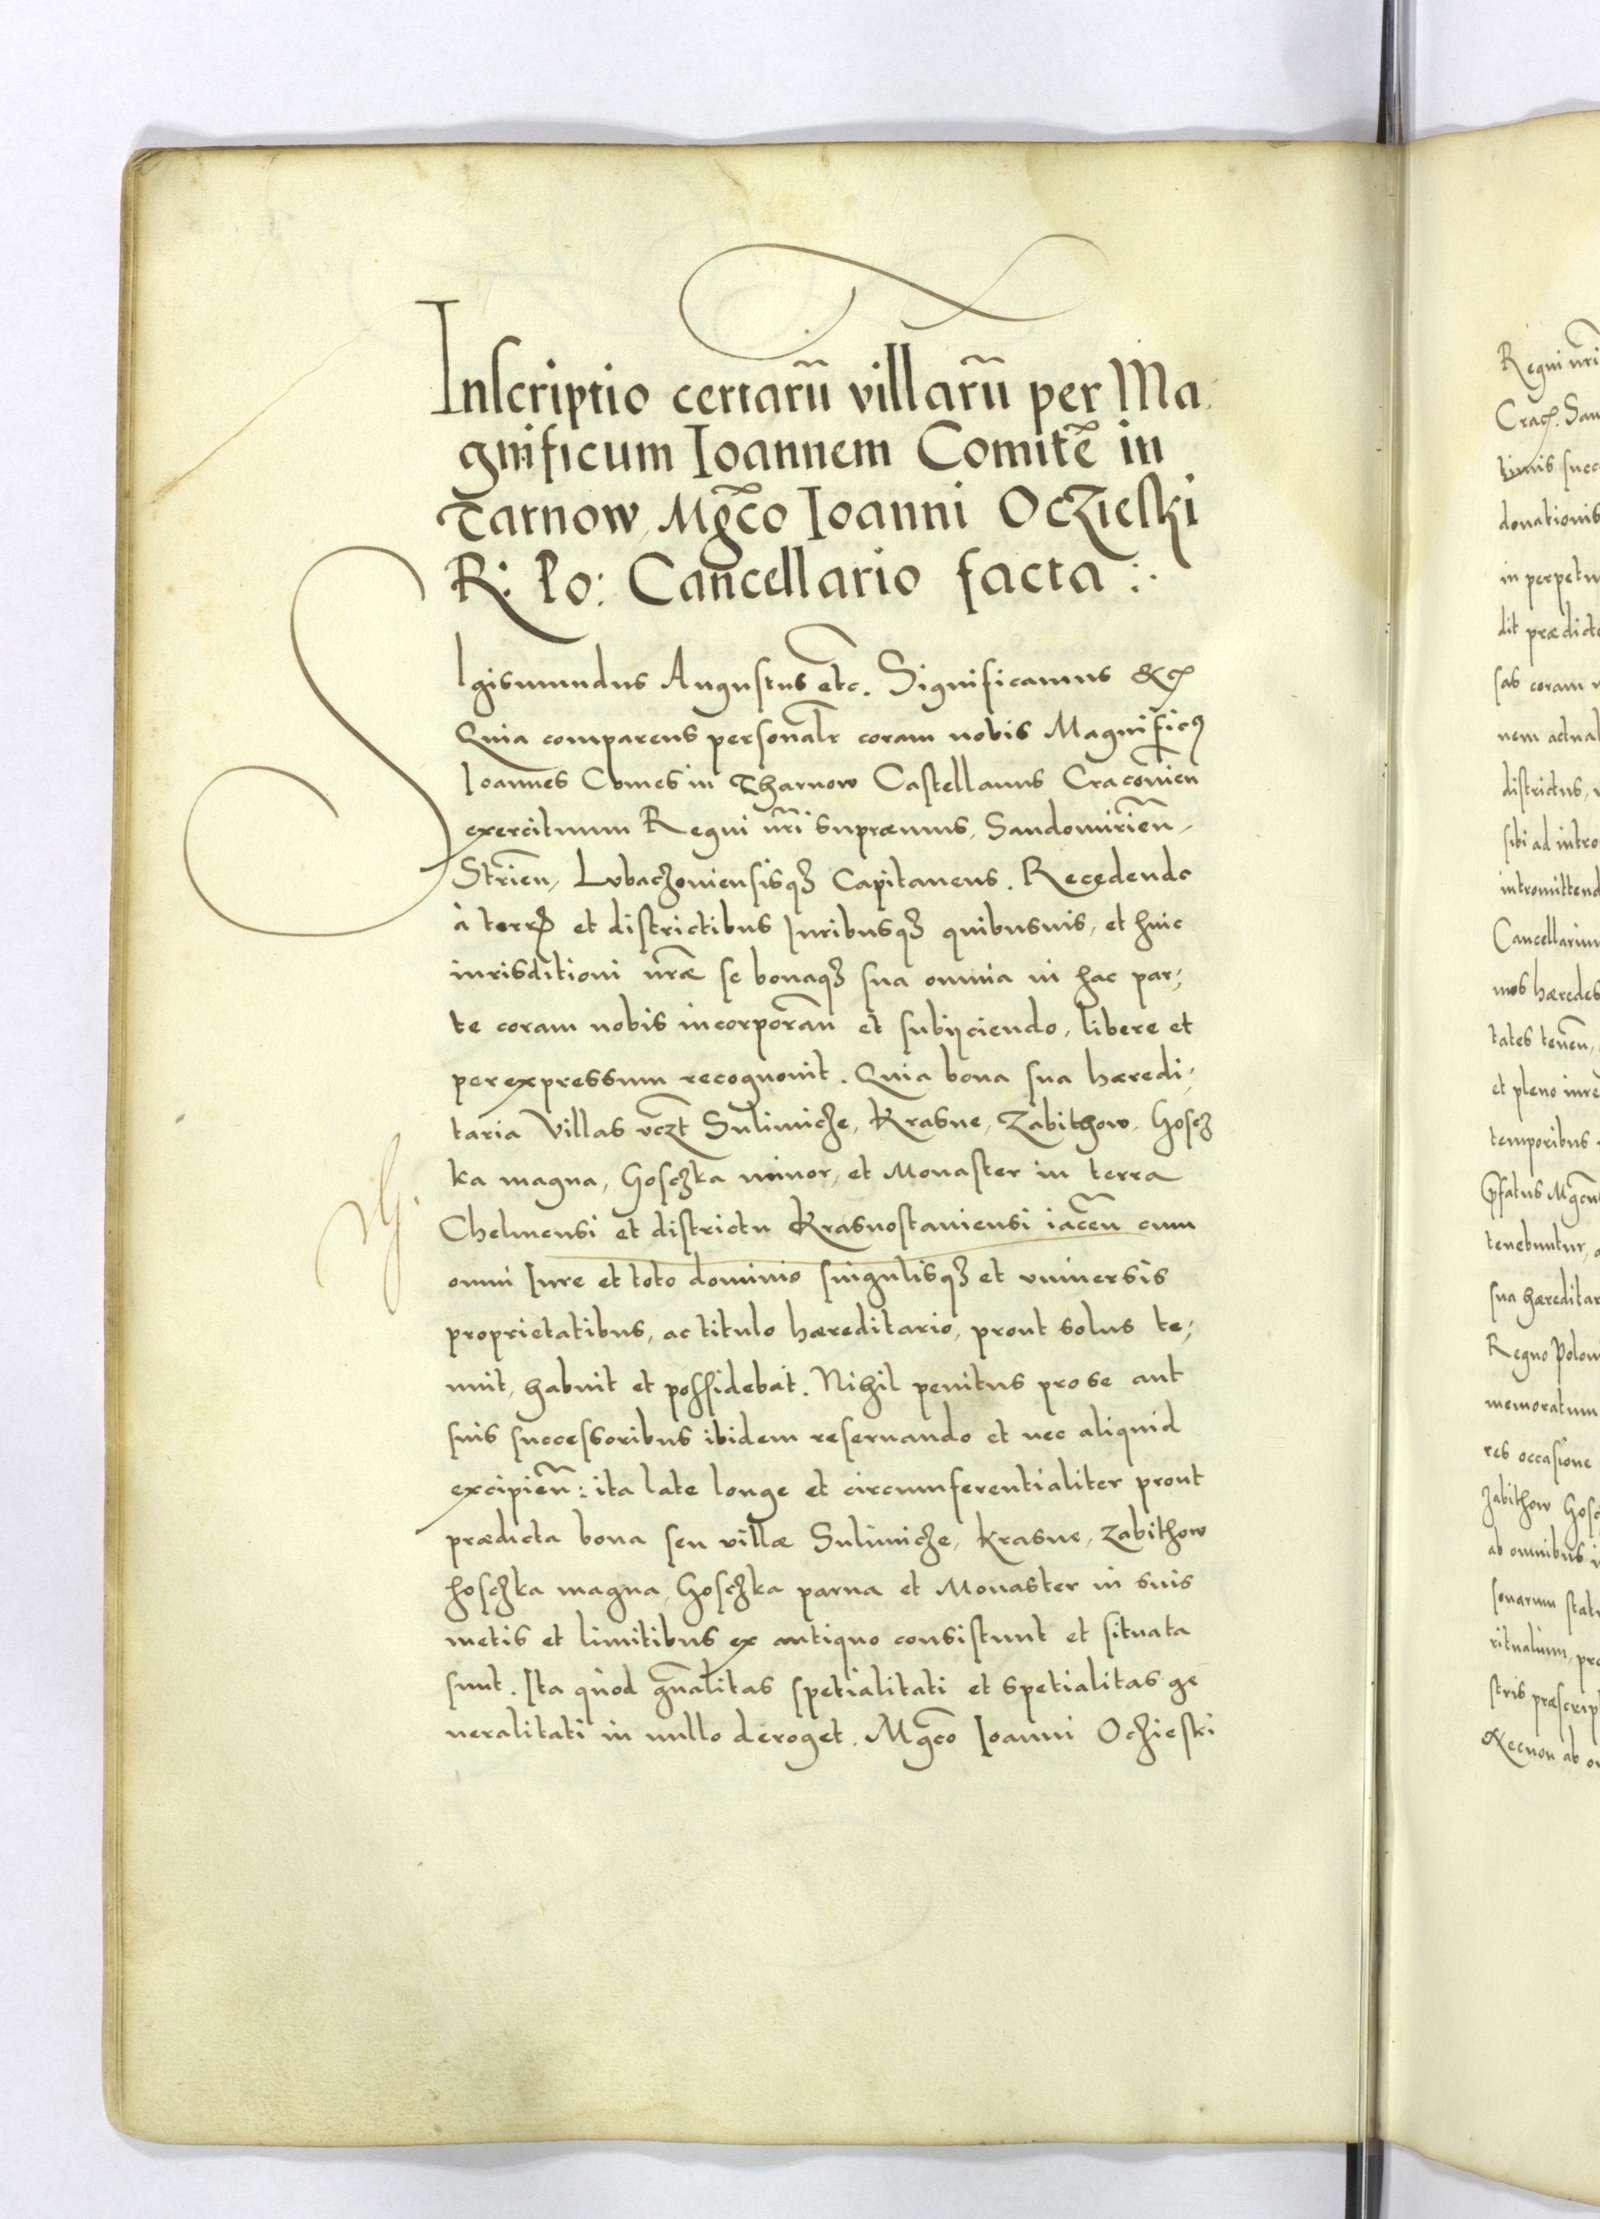 Inscriptio certarũ villarũ per Ma
gnificum Ioannem Comitẽ in
Tarnow, Mgc̃o Ioanni Oczieski
R: Po: Cancellario facta :.
SIgismundus Augustus etc̃. Significamus &c
Quia comparens personalr̃ coram nobis Magnificꝰ
Ioannes Comes in Tharnow Castellanus Cracovieñ
exercituum Regni nr̃i supræmus, Sandomirieñ,
Strieñ, Lubaczoviensisqꝫ Capitaneus. Recedendo
à terrꝭ et districtibus Iuribusqꝫ quibusuis, et huic
iurisditioni nr̃æ se bonaqꝫ sua omnia in hac par,
te coram nobis incorporañ et subijciendo, libere et
per expressum recognouit. Quia bona sua hæredi,
taria Villas vczt̃ Sulimicze, Krasne, Zabithow, Hoscz
ka magna, Hosczka minor, et Monaster in terra
Chelmensi et districtu Krasnostauiensi iaceñ cum
omni Iure et toto dominio singulisqꝫ et vniuersis
proprietatibus, ac titulo hæreditario, prout solus te,
nuit, habuit et possidebat. Nihil penitus pro se aut
suis successoribus ibidem reseruando et nec aliquid
excipieñ: ita late longe et circumferentialiter prout
prædicta bona seu villæ Sulimicze, Krasne, Zabithow
hosczka magna, Hosczka parua et Monaster in suis
metis et limitibus ex antiquo consistunt et situata
sunt. Ita quod gñalitas spetialitati et spetialitas ge
neralitati in nullo deroget. Mgc̃o Ioanni Oczieski
Regni nr̃i
donationis
in perpetu
sas coram
districtus,
sibi ad intro
intromittend
Cancellarium
mos hæredes
tates teneñ,
et pleno iure
temporibus
tenebuntur,
sua hæreditar
Regno Polon
memoratum
res occasione
Zabithow Hosc
ab omnibus
sonarum statu
ritualium, pro
stris præscrip